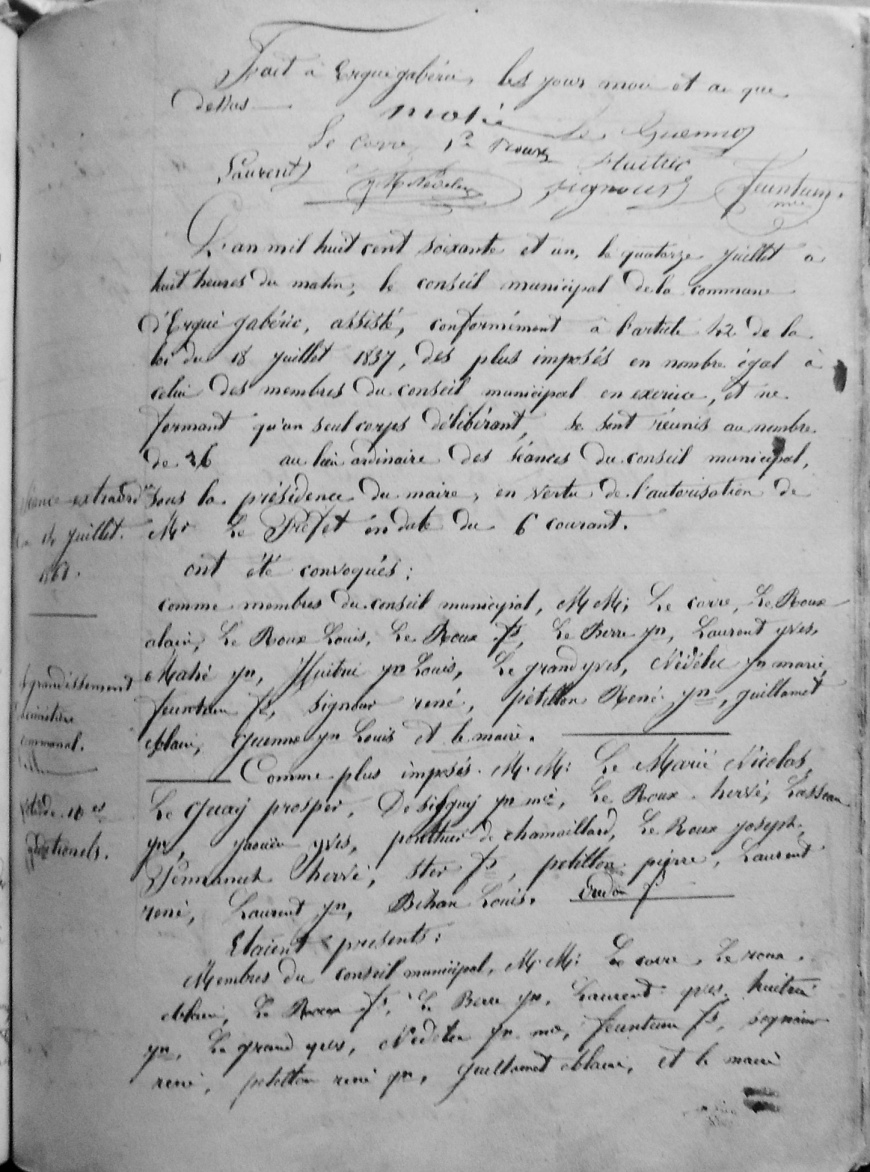 Fait à Ergué gabéric, les jour mois et an que
dessus
Mahé Le Guennoz
Le Corre Huitric
Laurent Signour feunteun
L'an mil huit cent soixante et un, le quatorze juillet à
huit heures du matin, le conseil municipal de la commune
d'Ergué gabéric, assisté, conformément à l'article 42 de la
loi du 18 juillet 1837, des plus imposés en nombre égal à
celui des membres du conseil municipal en exercice, et ne
formant qu'un seul corps délibérant, se sont réunis au nombre
de 26 au lieu ordinaire des séances du conseil municipal,
sous la présidence du maire, en vertu de l'autorisation de
Mr Le Préfet en date du 6 courant.
Séance extraord
14 juillet.
1861.
ont été convoqués :
comme membres du conseil municipal, M M; Le corre, Le Roux
alain, Le Roux Louis, Le Roux fs, Le Berre yn, Laurent yves,
Mahé yn, Huitric yn Louis, Le grand yves, Nédélec yn marie,
feunteun fs, signour rené, pétillon René yn, guillamet
allain, guenno yn Louis et le maire.
agrandissement
cimetière
communal.
Comme plus imposés. M. M: Le Marié Nicolas,
Le Guay prosper, De silguy yn mie, Le Roux hervé, Lasseau
yn, yaouen yves, ponthier de chamaillard, Le Roux joseph,
hervé, ster fs, petillon pierre, Laurent
rené, Laurent yn, Bihan Louis.
Vote de 10 es
additionels.
Etaient présents :
Membres du conseil municipal, M. M: Le corre, Le roux
allain, Le Roux fs, Le Berre yn, Laurent yves, huitric
yn, Le grand yves, Nédélec yn mie, feunteun fs, signour
rené, petillon rené yn, guillamet allain, et le maire